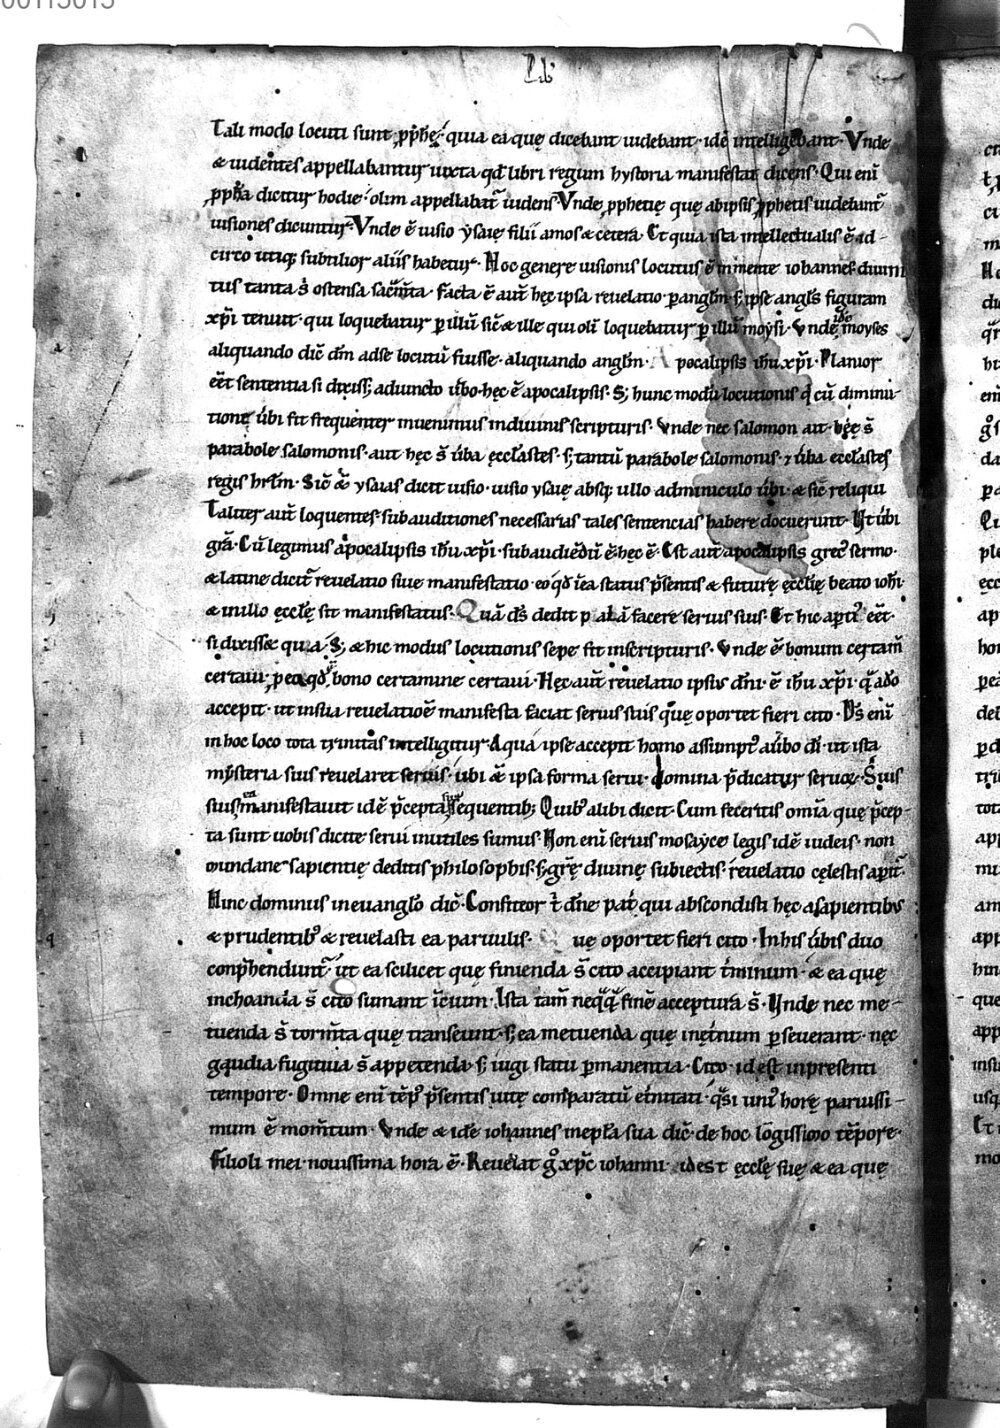 00113013
Lib'
Tali modo locuti sunt ꝓph̄ę· quia ea quę dicebant uidebant· idē intelligebant· Vnde
& uidentes appellabantur iuxta qđ libri regum hystoria manifestat dicens· Qui enī
ꝓph̄a dicitur hodie· olim appellabat᷑ uidens· Vnde ꝓphetię quę ab ipsis ꝓphetis uidebant᷑
uisiones dicuntur· Vnde ē uisio ysaię filii amos & cetera· Et quia ista intellectualis ē ad-
circo utiq; subtilior aliis habetur· Hoc genere uisionis locutus ē iohannes· diuini
tus tanta s̄ ostensa sac̄m̄ta· Facta ē aut̄ hęc ipsa reuelatio ꝑ angl̄m· s; ipse angl̄s figuram
xp̄i tenuit· qui loquebatur ꝑ illū sic̄ & ille qui olī loquebatur ꝑ illū moysi· Vnde ido moyses
aliquando dic̄ dn̄m ad se locutū fuisse· aliquando angl̄m· Apocalipsis ih̄u xp̄i· Planior
eēt sententia si dixiss; adiuncto ūbo· hęc ē apocalipsis· S; hunc modū locutionis q cū diminu-
tione ūbi fit frequenter inuenimus in diuinis scripturis· Vnde nec salomon ait· hęc s̄
parabole salomonis· aut hęc s̄ ūba ęccl̄astes· s; tantū parabole salomonis· ⁊ ūba eccl̄astes
regis hrl̄m· Sic̄ & ysaias dicit uisio· uisio ysaię absq; ullo adminiculo ūbi· & sic̄ reliqui
Taliter aut̄ loquentes· subauditiones necessarias tales sentencias habere docuerunt· Vt ūbi
gr̄a· Cū legimus apocalipsis ih̄u xp̄i· subaudiēdū ē· hęc ē· Est aut̄ apocalipsis grec᷒ sermo·
& latine dicit᷑ reuelatio siue manifestatio· eo qđ īea status p̄sentis & futurę ęccl̄ię beato ioh̄i·
& in illo ęccl̄ę sit manifestatus· Quā ds̄ dedit palā facere seruis suis· Et hic apti᷒ eēt·
si dixisset quia· S; & hic modus locutionis sepe fit in scripturis· Vnde ē bonum certam̄
certaui, ꝓ eo qđ bono certamine certaui· Hęc aut̄ reuelatio ipsius dn̄i ē ih̄u xp̄i· q̄ a dō
accepit· ut in sua reuelationē manifesta faciat seruis suis quę oportet fieri cito· Ds̄ enī
in hoc loco tota trinitas intelligitur· A qua ipse accepit homo assumpt᷒ a ūbo dī· ut ista
mysteria suis reuelaret seruis· ubi & ipsa forma serui· domina p̄dicatur seruoꝝ· Suis
suis manifestauit idē p̄cepta sequentib; Quib᷒ alibi dicit· Cum feceritis omia quę p̄cep-
ta sunt uobis dicite serui inutiles sumus· Non enī seruis mosaycę legis idē iudeis· non
mundanę sapientię deditis philosophis· s; gr̄ę diuinę subiectis· reuelatio cęlestis apit᷑·
Hinc dominus in euangl̄o dic̄· Confiteor t̄ dn̄e pat̄ qui abscondisti hęc a sapientibus
& prudentib᷒ & reuelasti ea paruulis· Quę oportet fieri cito· In his ūbis duo
conp̄hendunt᷑· ut ea scilicet quę finienda s̄ cito accipiant t̄minum· & ea quę
inchoanda s̄ cito sumant īcium· Ista tam̄ neq̄q̄ finē acceptura s̄· Vnde nec me-
tuenda s̄ torm̄ta quę transeunt· s; ea metuenda quę inęt̄num ꝑseuerant· nęc
gaudia fugitiua s̄ appetenda· s; iugi statu ꝑmanentia· Cito· id est in presenti
tempore· Omne enī tēp᷒ p̄sentis uitę comparatū et̄nitati· q̄si uni᷒ horę paruissi-
mum ē mom̄tum· Vnde & idē iohannes in epl̄a sua dic̄· de hoc lōgissimo tēpore·
Filioli mei· nouissima hora ē· Reuelat g̊ xp̄c iohanni· id est ęccl̄ę suę & ea quę